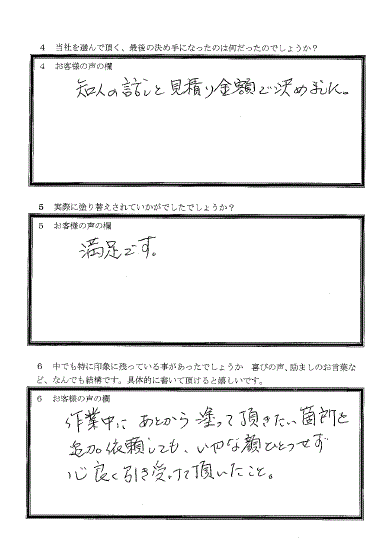 4 当社を選んで頂く、最後の決め手になったのは何だったのでしょうか？
4 お客様の声の欄
知人の話しと見積り金額で決めました。
5 実際に塗り替えされていかがでしたでしょうか？
5 お客様の声の欄
満足です。
6 中でも特に印象に残っている事があったでしょうか 喜びの声、励ましのお言葉な
ど、なんでも結構です。具体的に書いて頂けると嬉しいです。
6 お客様の声の欄
作業中に あとから塗って頂きたい箇所を
追加依頼しても、いやな顔ひとつせず
心良く引き受けて頂いたこと。